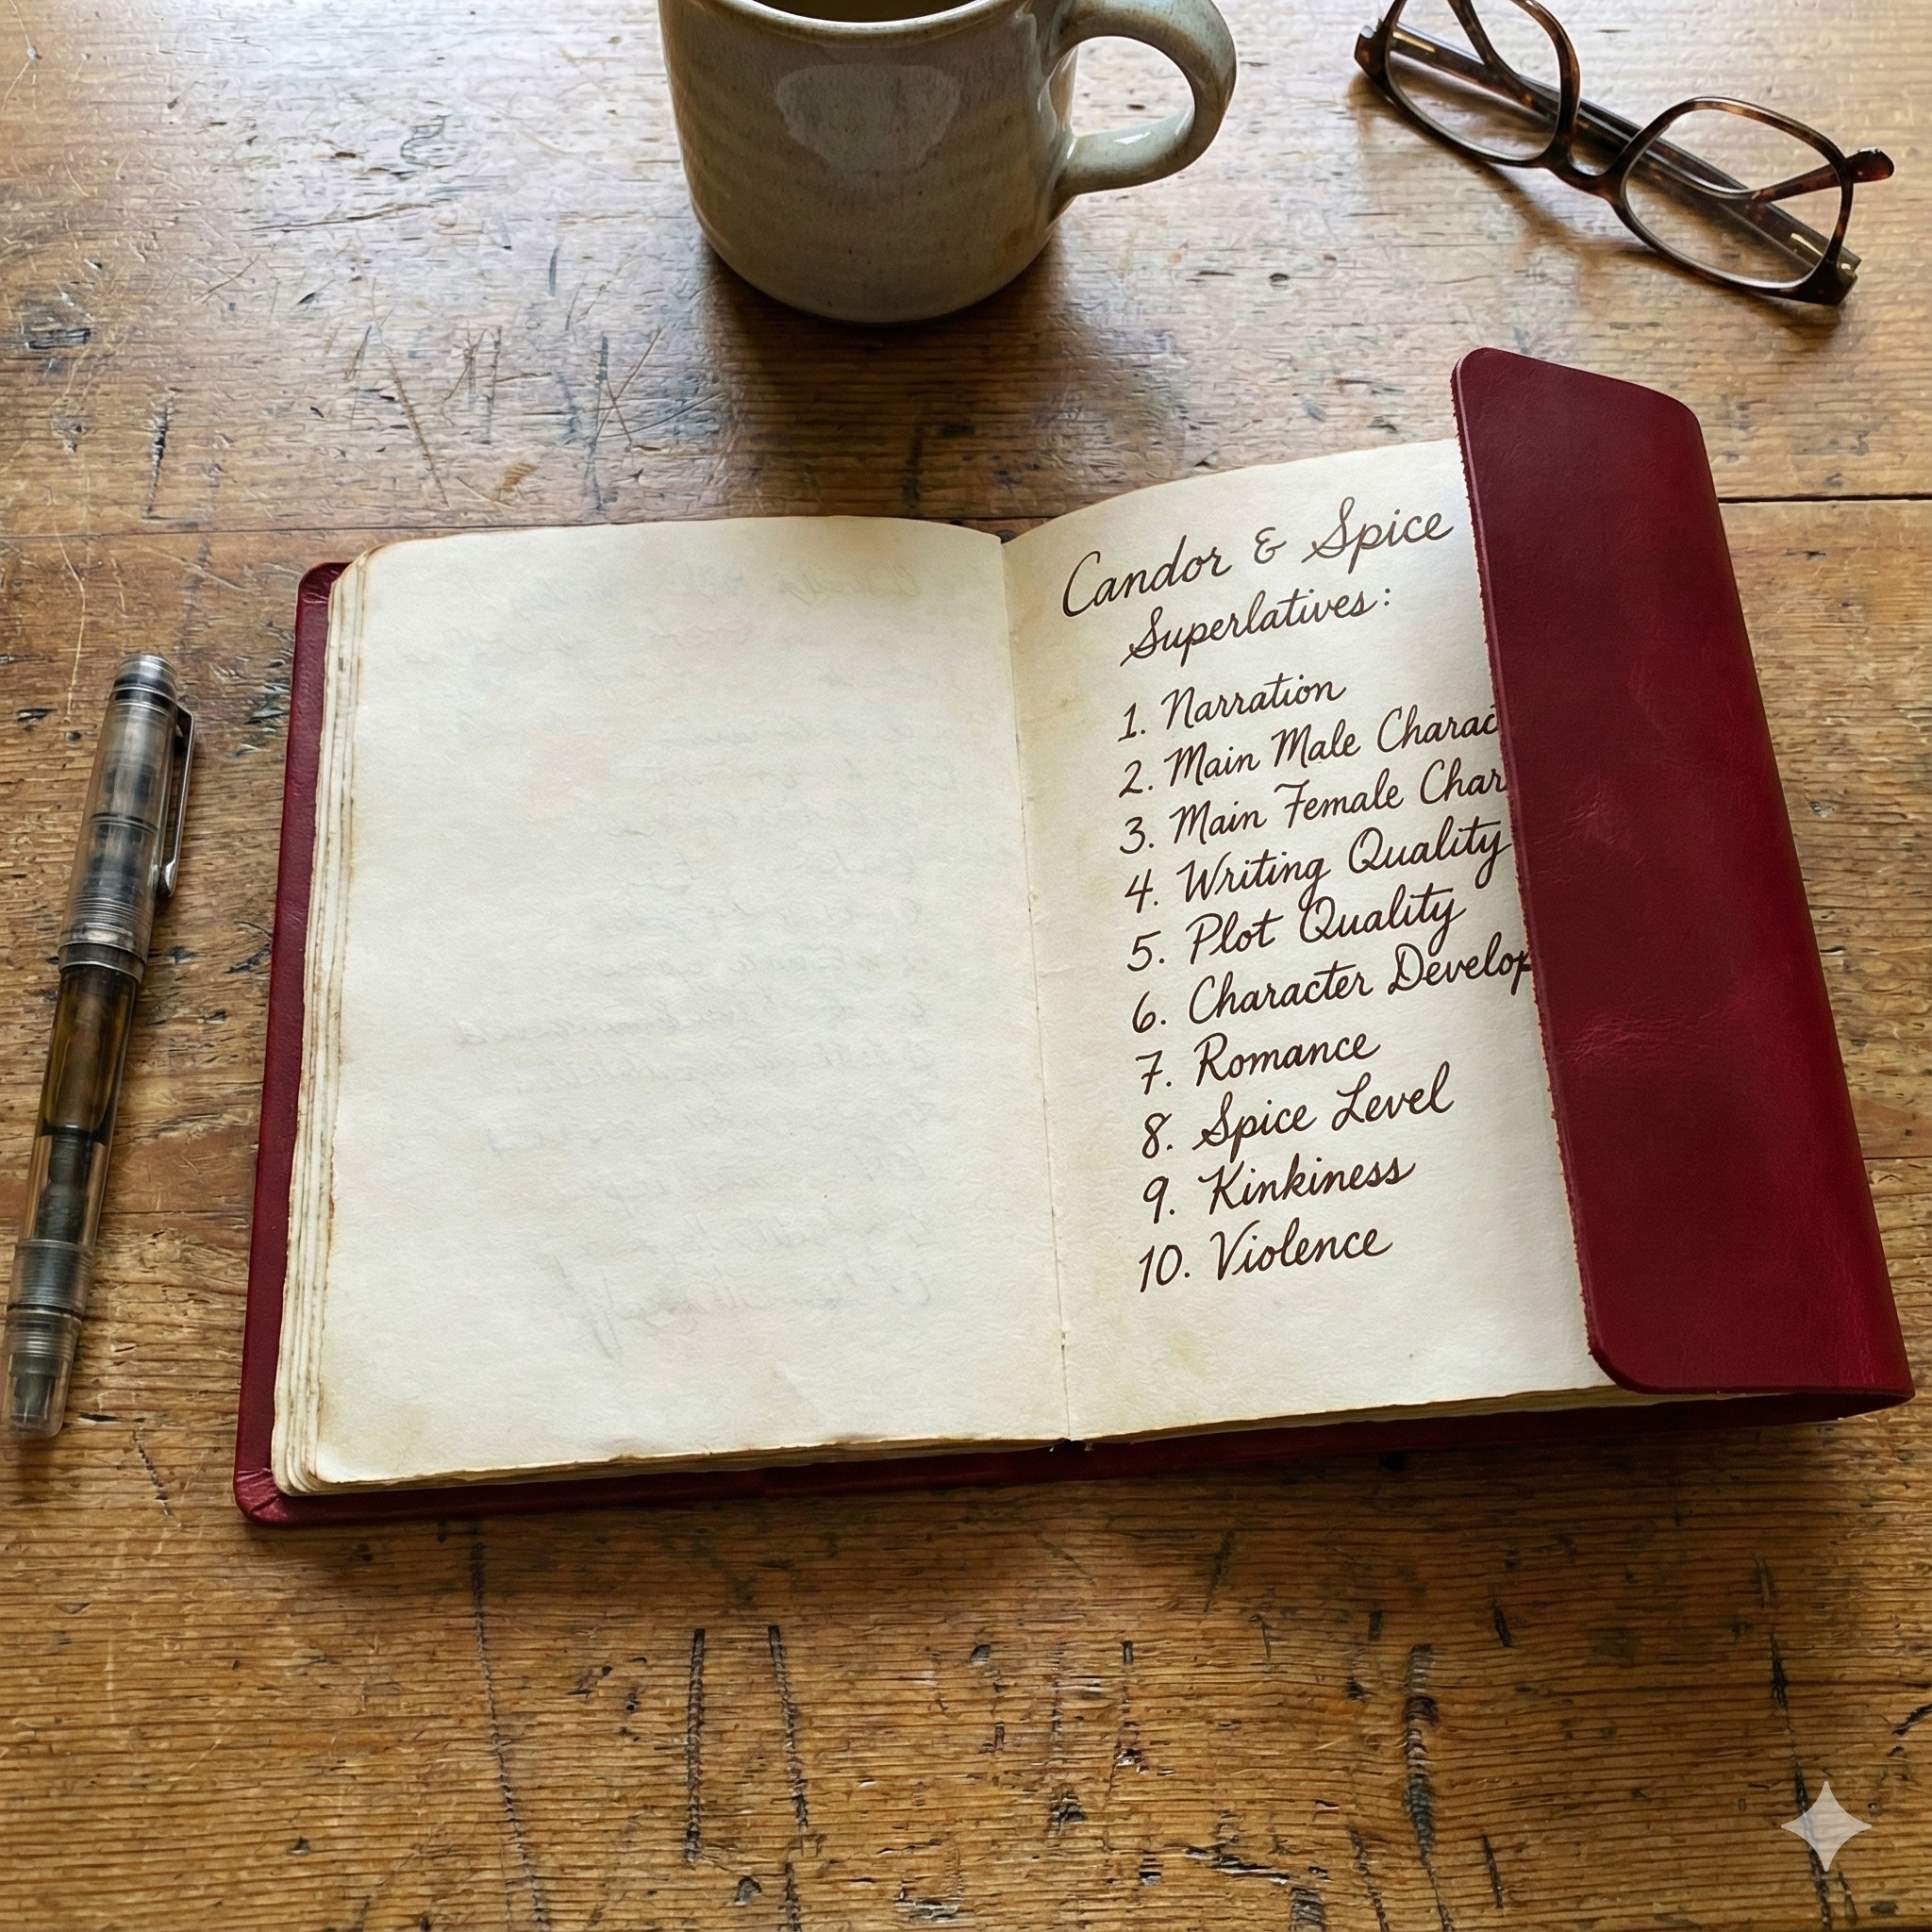 Candor & Spice
Superlatives:
1. Narration
2. Main Male Charac
3. Main Female Char
4. Writing Quality
5. Plot Quality
6. Character Develop
7. Romance
8. Spice Level
9. Kinkiness
10. Violence